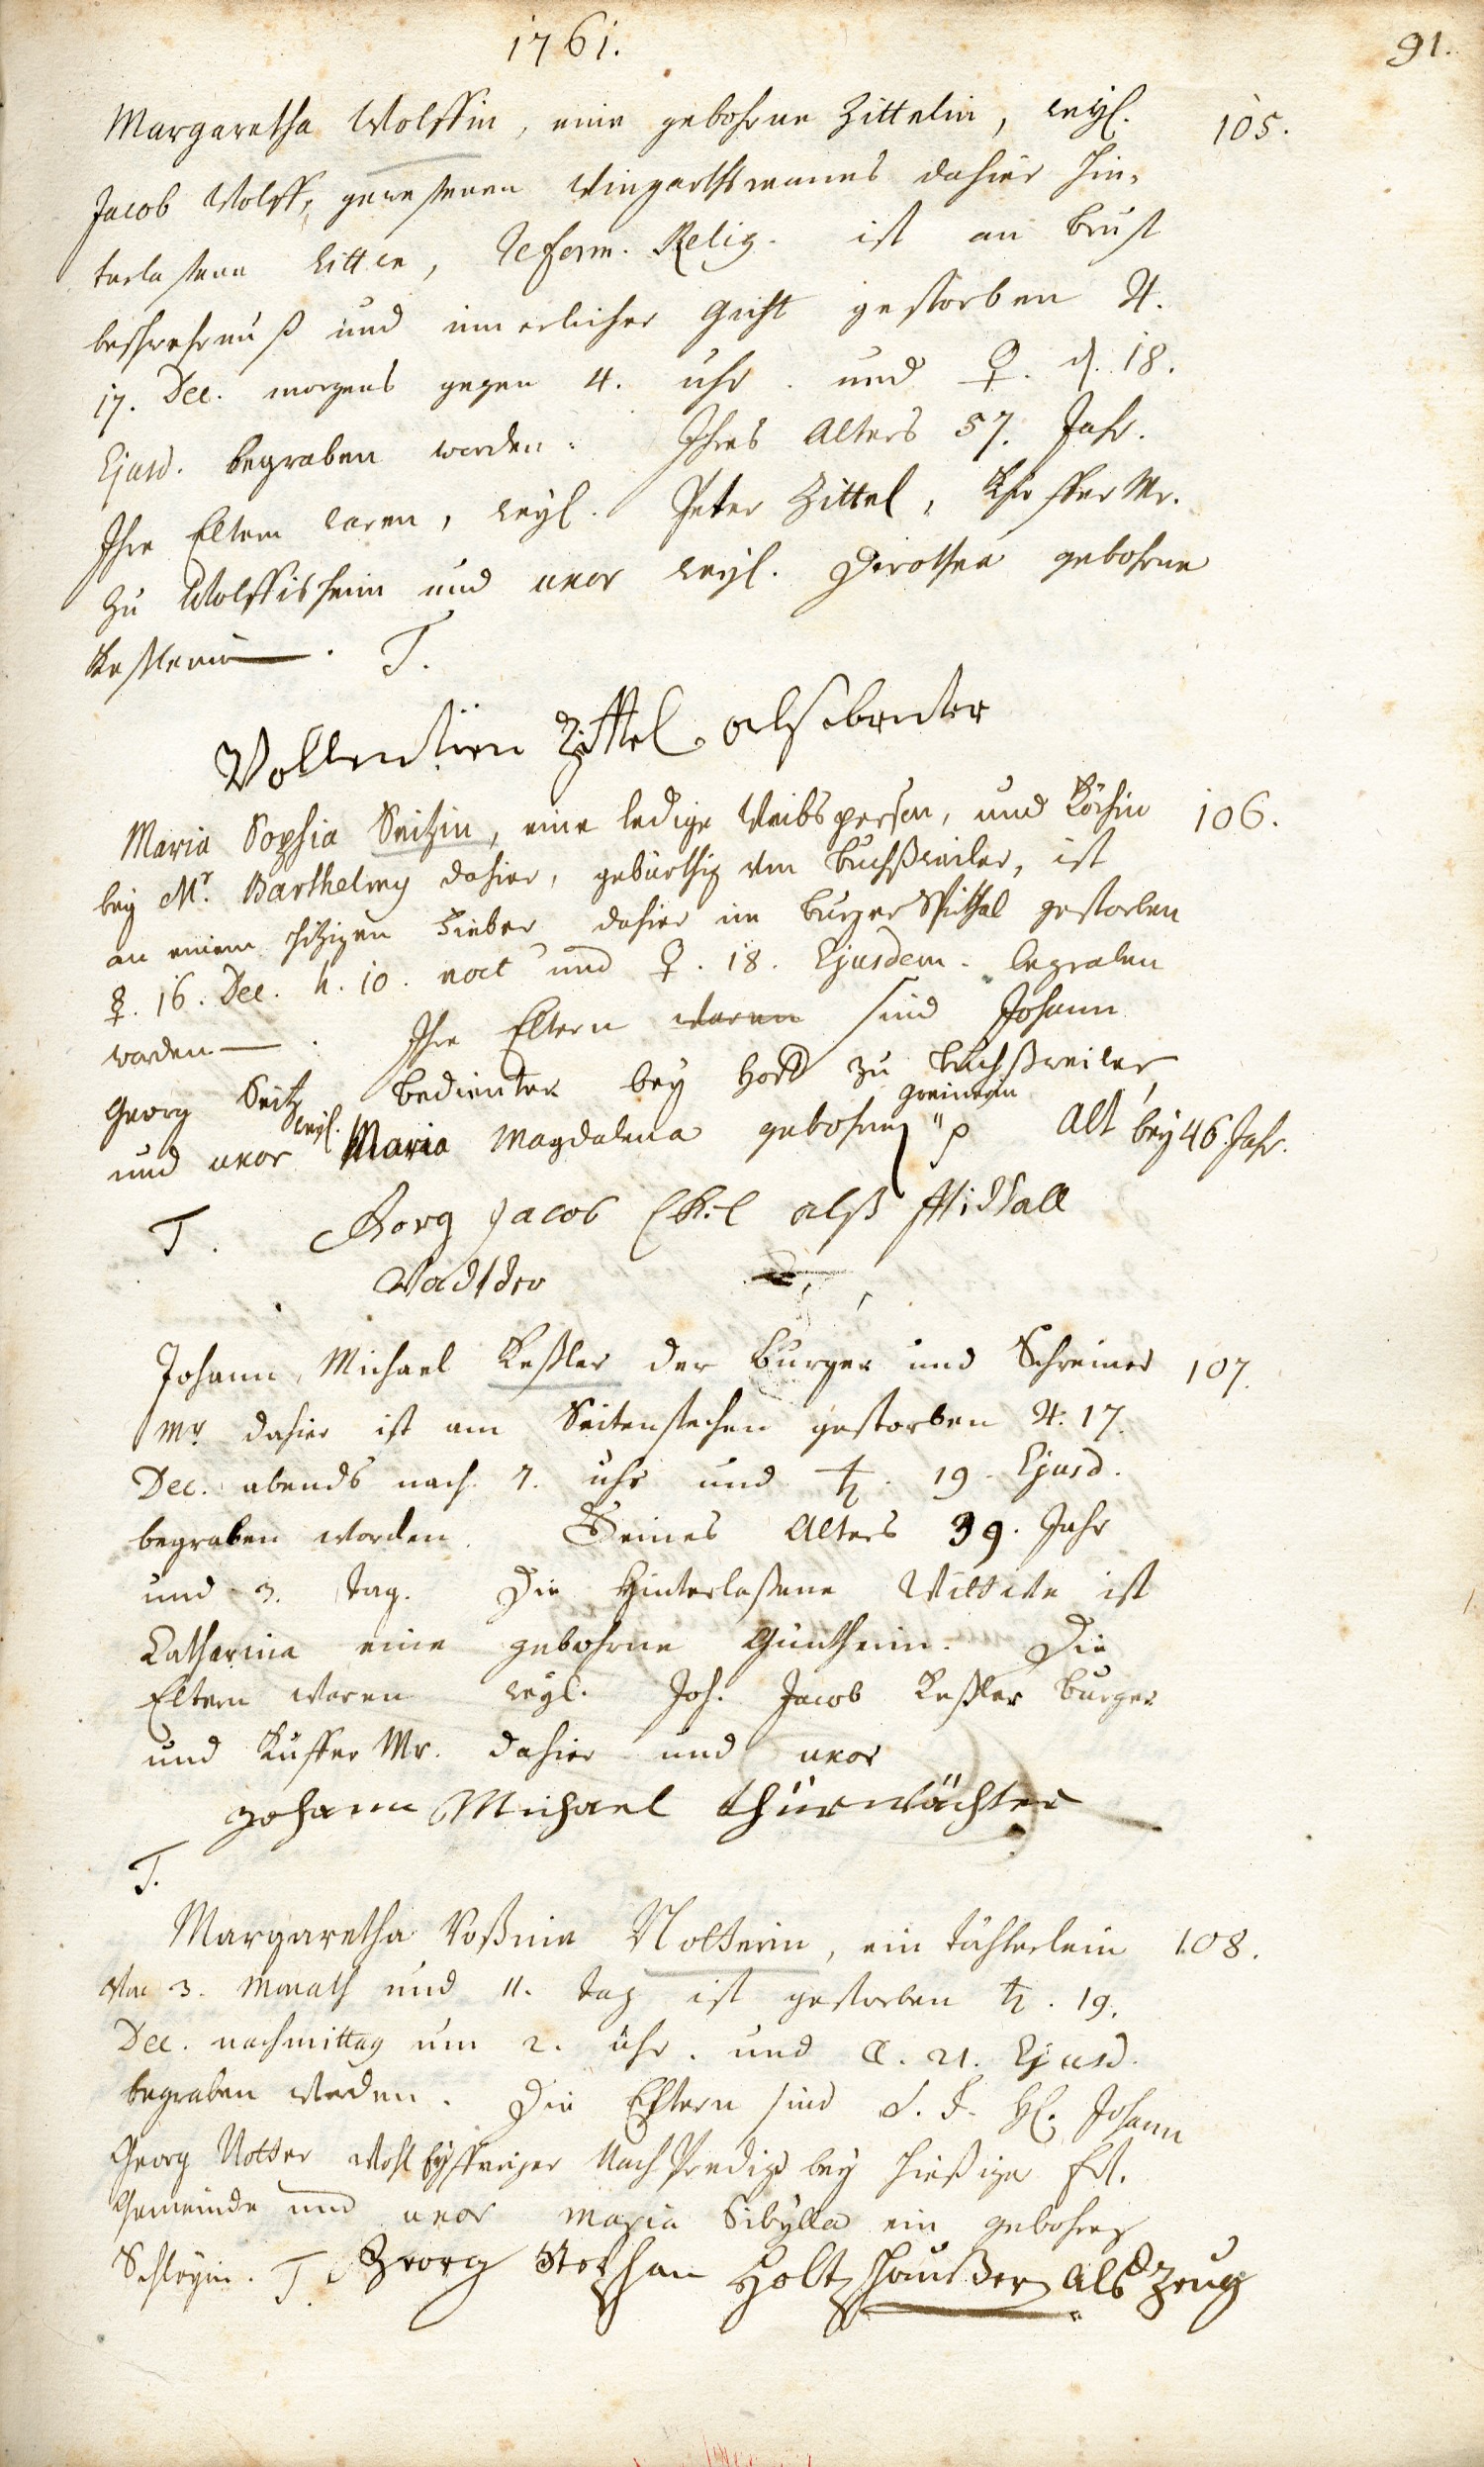 1761.
91.
Margaretha Wolffin, eine gebohrne Zittelin, weyl. 105.
Jacob Wolff, gewesenen Weingarthsmanns dahier hin-
terlassene Wittwe, Reform. Relig. ist an Brust
beschwehrnuß und innerlicher Gicht gestorben ♃.
17. Dec. morgens gegen 4. uhr. und ♀. d. 18.
Ejusd. begraben worden. Ihres Alters 57. Jahr.
Ihre Eltern waren, weyl. Peter Zittel, Kieffer Mr.
zu Wolffisheim und uxor weyl. Dorothea gebohrne
Keßlerin. T.
Vollentien Zittel als bruder
Maria Sophia Seitzin, eine ledige Weibsperson, und Köchin 106.
bey Mr. Barthelmy dahier, gebürthig von Buchßweiler, ist
an einem hitzigen Fieber dahier im Burger Spithal gestorben
☿. 16. Dec. h. 10. noct und ♀. 18. Ejusdem. begraben
worden. Ihre Eltern waren sind Johann
Georg Seitz Bedienter bey Hoff zu Buchßweiler
und uxor weyl. Maria Magdalena gebohrne Greinerin Alt bey 46. Jahr.
T. Georg Jacob alß Spidall
Vadtder
Johann Michael Keßler der Burger und Schreiner 107.
Mr. dahier ist am Seitenstechen gestorben ♃. 17.
Dec. abends nach 7. uhr und ♄. 19. Ejusd.
begraben worden. Seines Alters 39. Jahr
und 3. Tag. Die Hinterlaßene Wittwe ist
Catharina eine gebohrne Güntherin. Die
Eltern waren weyl. Joh. Jacob Keßler Burger
und Kuffer Mr. dahier und uxor
Johann Michael thürwächter
T.
Margaretha Roßina Nolterin, ein töchterlein 108.
von 3. Monath und 11. Tag ist gestorben ♄. 19.
Dec. nachmittag um 2. uhr. und ☾. 21. Ejusd.
begraben worden. Die Eltern sind S. T. H. Johann
Georg Nolter wohl Eyffriger Nach Prediger bey hießiger Frl.
Gemeinde und uxor Maria Sibylla ein gebohrne
T. Georg Stephan Holtzhaußer alß Zeug